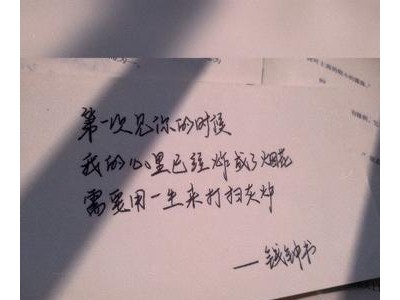 第一次见你的时候
我的心里已经炸成了烟花
需要用一生来打扫灰炉
——钱钟书